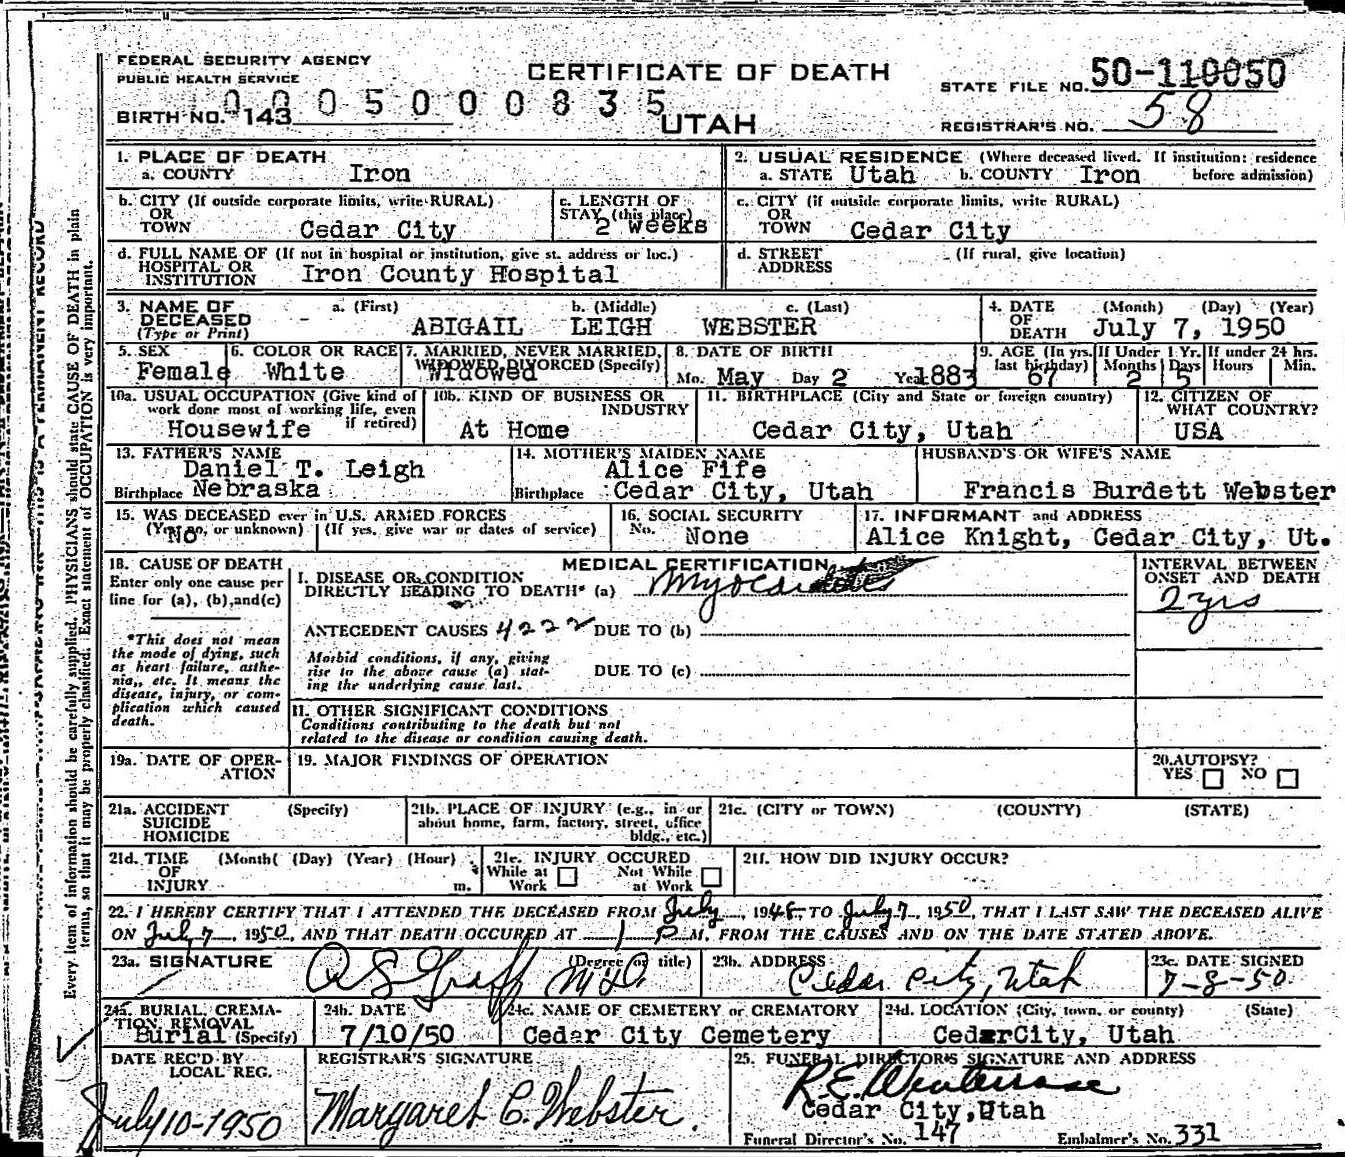 FEDERAL SECURITY AGENCY
PUBLIC HEALTH SERVICE
CERTIFICATE OF DEATH
STATE FILE NO. 50-110050
0 0 0 5 0 0 0 8 3 5
BIRTH NO. 143
UTAH
REGISTRAR'S NO. 58
1. PLACE OF DEATH
a. COUNTY Iron
2. USUAL RESIDENCE (Where deceased lived. If institution: residence
a. STATE Utah b. COUNTY Iron before admission)
b. CITY (If outside corporate limits, write RURAL)
OR
TOWN Cedar City
c. LENGTH OF
STAY (this place)
2 weeks
c. CITY (if outside corporate limits, write RURAL)
OR
TOWN Cedar City
d. FULL NAME OF (If not in hospital or institution, give st. address or loc.)
HOSPITAL OR
INSTITUTION Iron County Hospital
d. STREET (If rural, give location)
ADDRESS
3. NAME OF a. (First) b. (Middle) c. (Last)
DECEASED
(Type or Print) ABIGAIL LEIGH WEBSTER
4. DATE (Month) (Day) (Year)
OF
DEATH July 7, 1950
5. SEX
Female
6. COLOR OR RACE
White
7. MARRIED, NEVER MARRIED,
WIDOWED, DIVORCED (Specify)
Widowed
8. DATE OF BIRTH
Mo. May Day 2 Year 1883
9. AGE (In yrs. last birthday) 67
If Under 1 Yr. Months 2 Days 5
If under 24 hrs. Hours Min.
10a. USUAL OCCUPATION (Give kind of
work done most of working life, even
if retired)
Housewife
10b. KIND OF BUSINESS OR
INDUSTRY
At Home
11. BIRTHPLACE (City and State or foreign country)
Cedar City, Utah
12. CITIZEN OF
WHAT COUNTRY?
USA
13. FATHER'S NAME
Daniel T. Leigh
Birthplace Nebraska
14. MOTHER'S MAIDEN NAME
Alice Fife
Birthplace Cedar City, Utah
HUSBAND'S OR WIFE'S NAME
Francis Burdett Webster
15. WAS DECEASED ever in U.S. ARMED FORCES
(Yes, no, or unknown) (If yes, give war or dates of service)
No
16. SOCIAL SECURITY
No. None
17. INFORMANT and ADDRESS
Alice Knight, Cedar City, Ut.
18. CAUSE OF DEATH
Enter only one cause per
line for (a), (b), and (c)
*This does not mean
the mode of dying, such
as heart failure, asthe-
nia,, etc. It means the
disease, injury, or com-
plication which caused
death.
MEDICAL CERTIFICATION
I. DISEASE OR CONDITION
DIRECTLY LEADING TO DEATH* (a) Myocarditis
ANTECEDENT CAUSES 4222 DUE TO (b)
Morbid conditions, if any, giving
rise to the above cause (a) stat-
ing the underlying cause last.
DUE TO (c)
II. OTHER SIGNIFICANT CONDITIONS
Conditions contributing to the death but not
related to the disease or condition causing death.
INTERVAL BETWEEN
ONSET AND DEATH
2 yrs
19a. DATE OF OPER-
ATION
19. MAJOR FINDINGS OF OPERATION
20. AUTOPSY?
YES NO
21a. ACCIDENT (Specify)
SUICIDE
HOMICIDE
21b. PLACE OF INJURY (e.g., in or
about home, farm, factory, street, office
bldg., etc.)
21c. (CITY or TOWN) (COUNTY) (STATE)
21d. TIME (Month( (Day) (Year) (Hour)
OF
INJURY m.
21e. INJURY OCCURED
While at Work Not While at Work
21f. HOW DID INJURY OCCUR?
22. I HEREBY CERTIFY THAT I ATTENDED THE DECEASED FROM July, 1948, TO July 7, 1950, THAT I LAST SAW THE DECEASED ALIVE
ON July 7, 1950, AND THAT DEATH OCCURED AT 1 P M. FROM THE CAUSES AND ON THE DATE STATED ABOVE.
23a. SIGNATURE (Degree or title)
A S Graff MD
23b. ADDRESS
Cedar City, Utah
23c. DATE SIGNED
7-8-50
24a. BURIAL, CREMA-
TION, REMOVAL
Burial (Specify)
24b. DATE
7/10/50
24c. NAME OF CEMETERY or CREMATORY
Cedar City Cemetery
24d. LOCATION (City, town, or county) (State)
Cedar City, Utah
DATE REC'D BY
LOCAL REG.
July 10-1950
REGISTRAR'S SIGNATURE
Margaret C. Webster.
25. FUNERAL DIRECTOR'S SIGNATURE AND ADDRESS
Cedar City, Utah
Funeral Director's No. 147 Embalmer's No. 331
Every item of information should be carefully supplied. PHYSICIANS should state CAUSE OF DEATH in plain
terms, so that it may be properly classified. Exact statement of OCCUPATION is very important.